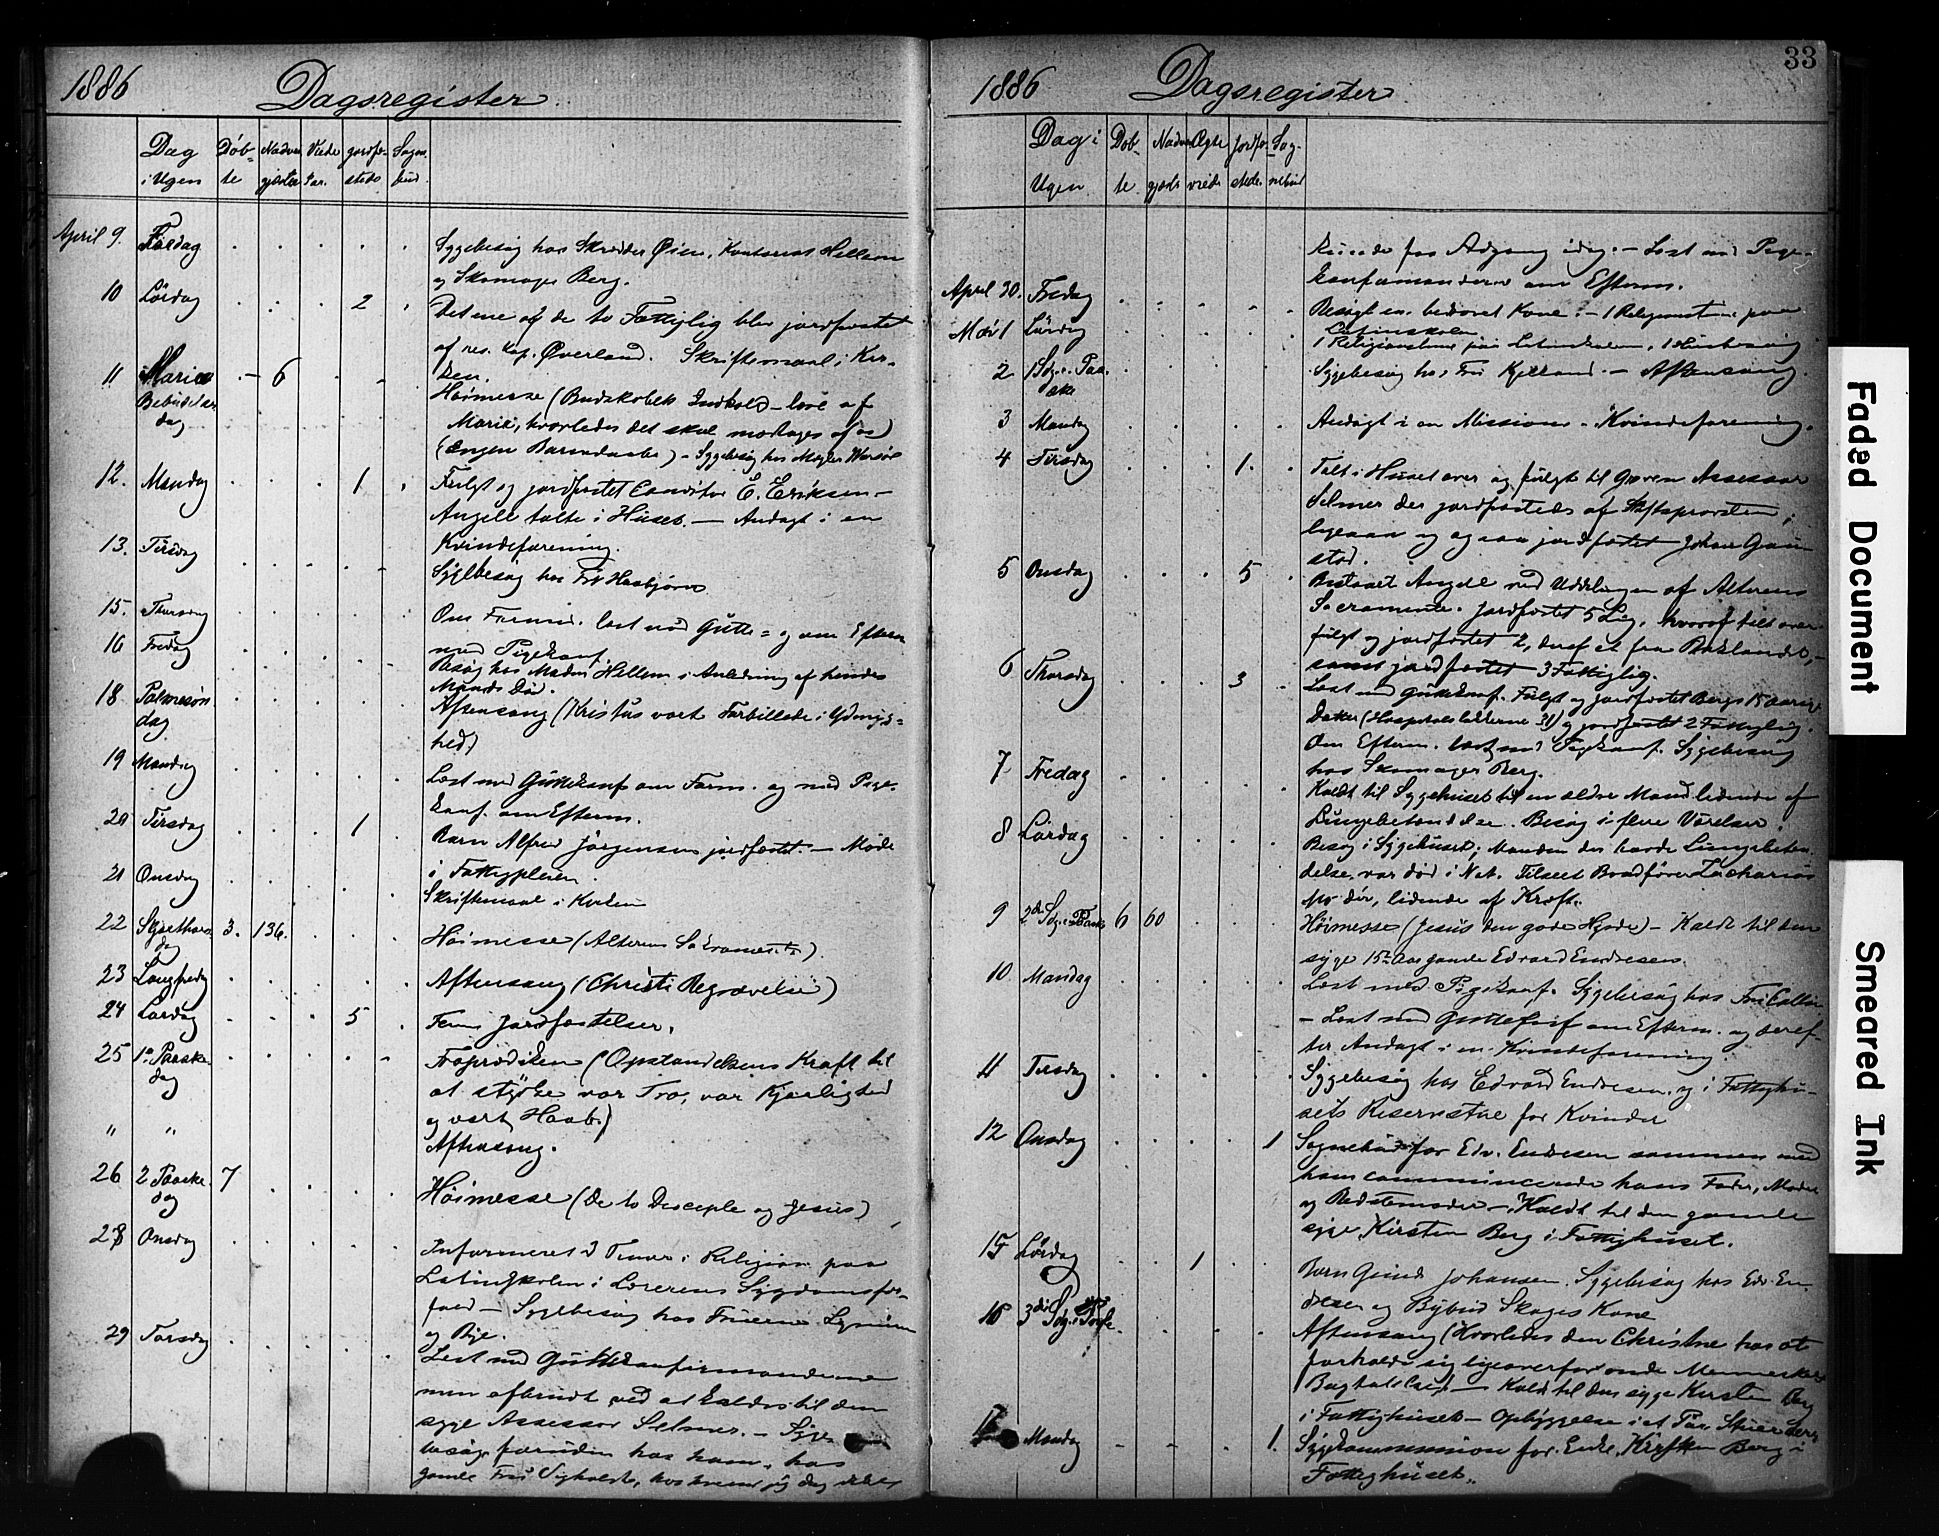 1886 Dagsregister
Dag i Ugen Døb- te Nadver gjæster Viede Par. jordfæ- stede Sogne bud.
April 9. Fredag
Sygebesøg hos Skrædder Øien, Kontorist Hellem
og Skomager Berg.
10 Lördag 2
Det ene af de to Fattiglig blev jordfæstet
af res. Kap. Øverland. Skriftemaal i Kir-
ken.
11 Mariæ Bebudelses dag 6
Høimesse (Budskabets Indhold – love af
Marie, hvorledes det skal modtages af os)
(Ingen Barnedaabe) – Sygebesøg hos Mægler
12. Mandag 1
Fulgt og jordfæstet Conditor E. Eriksen –
Angell talte i Huset. – Andagt i en
Kvindeforening.
13. Tirsdag
Sygebesøg hos Haabjørn
15. Thorsdag
Om Formid. læst med Gutte- og om Efterm
med Pigekonf.
16 Fredag
Besøg hos Madam Hellem i Anledning af hendes
Mands Död.
18 Palmesøn dag
Aftensang (Kristus vort Forbillede i Ydmyg-
hed)
19 Mandag
Læst med Guttekonf om Form. og med Pige-
konf. om Efterm.
20 Tirsdag 1
Barn Alfred Jörgensens jordfæstet. – Møde
i Fattigpleien
21 Onsdag
Skriftemaal i Kirken
22 Skjærthors dag 3. 136.
Høimesse (Alterens Sakramente).
23 Langfredag
Aftensang (Christi Begravelse)
24 Lørdag 5
Fem Jordfæstelser.
25 1ste Paaske- dag
Froprædiken (Opstandelsens Kraft til
at styrke vor Tro, vor Kjærlighed
og vort Haab.)
" "
Aftensang.
26 2 Paaske dag 7
Høimesse (De to Disciple og Jesus)
28 Onsdag
Informeret 3 Timer i Religion paa
Latinskolen i Lærerens Sygdomsfor-
fald – Sygebesøg hos Fruerne Lysum
og Bye.
29 Torsdag
Læst med Guttekonfirmanderne
men afbrudt ved at kaldes til den
syge Assessor Selmer. – Syge
besøg foruden hos ham, hos
gamle Fru hos hvem jeg dog ikke
33
1886 Dagsregister
Dag i Ugen Døb- te Nadver gjæste Ægte viede Jordfæ- stede. Sog- nebud
kunde faa Adgang idag. – Læst med Pige-
konfirmanderne om Efterm.
April 30. Fredag
Besøgt en bedrøvet Kone. – 1 Religionstime paa
Latinskolen
Mai 1 Lørdag
1 Religionstime paa Latinskolen, 1 Huusbesøg
2 1 Sdg. e. Paa- ske
Sygebesøg hos Fru Kjelland. – Aftensang.
3 Mandag
Andagt i en Missions-Kvindeforening.
4 Tirsdag 1.
Talt i Huset over og fulgt til Graven Assessor
Selmer der jordfæstedes af Stiftsprovsten;
ligesaa og ogsaa jordfæstet Johan Gaun
stad.
5 Onsdag 5
Bistaaet Angell ved Uddelingen af Alterens
Sacramente. Jordfæstet 5 Lig, hvoraf talt over
fulgt og jordfæstet 2, deraf et fra Baklandet, –
samt jordfæstet 3 Fattiglig.
6 Thorsdag 3
Læst med Guttekonf. Fulgt og jordfæstet Bergs 15 aarige
Datter (Hospitalsløkkerne 31) og jordfæstet 2 Fattiglig.
Om Efterm. læst med Pigekonf. Sygebesøg
hos Skomager Berg.
7 Fredag
Kaldt til Sygehuset til en ældre Mand lidende af
Lungebetændelse. Besøg i flere Værelser.
8 Lørdag
Besøg i Sygehuset; Manden der havde Lungebetæn
delse, var død i Nat. Tilseet Brødfører Zacharias
Mo der, lidende af Kræft.
9 2den Sdg. e. Paaske 6 60
Høimesse (Jesus den gode Hyrde) – Kaldt til den
syge 15 Aar gamle Edvard Endresen.
10 Mandag
Læst med Pigekonf. Sygebesøg hos Fru Collin
– Læst med Guttekonf om Efterm. og deref-
ter Andagt i en Kvindeforening.
11 Tirsdag
Sygebesøg hos Edvard Endresen, og i Fattighu-
sets Reservestue for Kvinder
12 Onsdag 1
Sognebud for Edv. Endresen sammen med
ham communicerede hans Fader, Moder
og Bedstemoder – Kaldt til den gamle
syge Kirsten Berg i Fattighuset.
15 Lørdag 1
Johansen. Sygebesøg hos Edv. En-
dresen og Bybud Skages Kone
16 3die Sdg. e. Paaske.
Aftensang (Hvorledes den Christne har at
forholde sig ligeoverfor onde Menneskers
Bagtalelse) – Kaldt til den syge Kirsten Berg
i Fattighuset – Opbyggelse i
Mandag 1.
Sygekommunion for Enke Kirsten Berg i
Fattighuset.
Faded Document
Smeared Ink